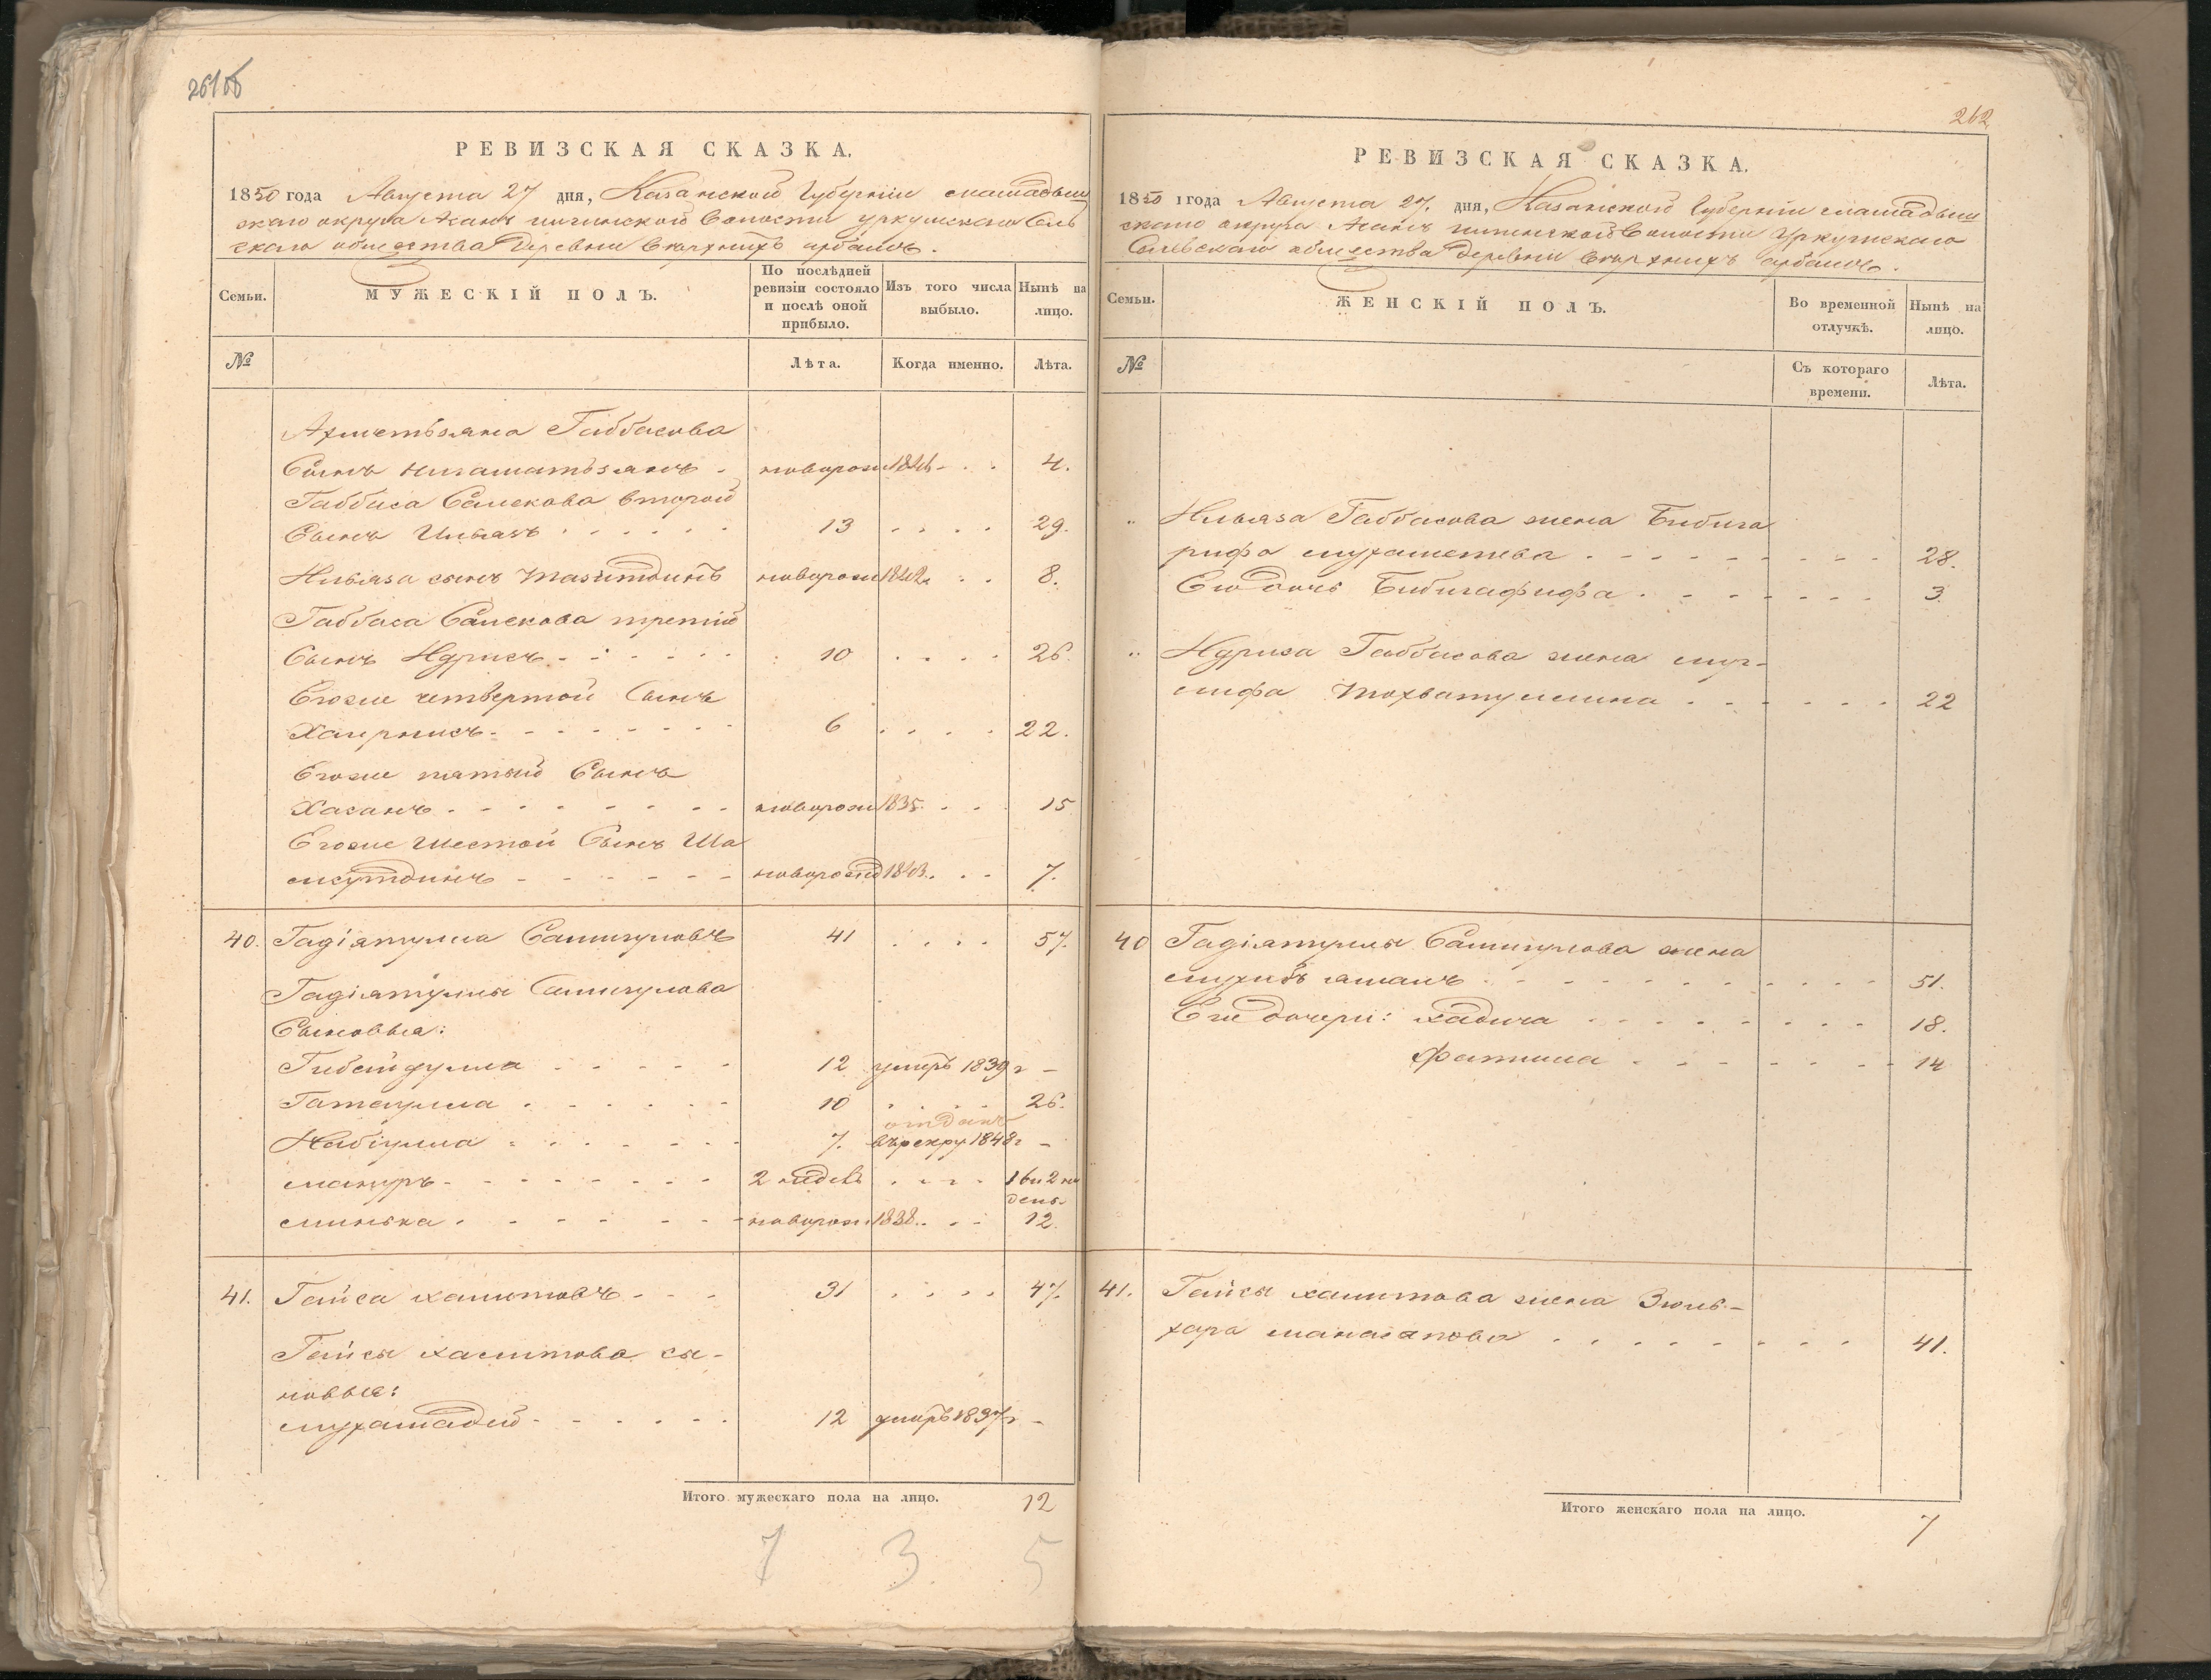 261об
РЕВИЗСКАЯ СКАЗКА.
1850 года Августа 27 дня, Казанской Губернии мамадыш
скаго округа волости уркушскаго Сель
скаго общества Деревни
Семьи.
МУЖЕСКІЙ ПОЛЪ.
По послѣдней ревизіи состояло и послѣ оной прибыло.
Изъ того числа выбыло.
Нынѣ на лицо.
№
Лѣта.
Когда именно.
Лѣта.
Ахметьзяна Габбасова
Сынъ нигаматьзянъ - новорож 1846 - . . 4.
Габбаса второй
Сынъ Ильязъ . . . . . 13 . . . . 29.
Ильяза сынъ новорож 1842 . . . 8.
Габбаса третій
Сынъ Идрисъ . . . . . 10 . . . . 26.
Егоже четвертой Сынъ
6 . . . . 22.
Егоже пятый Сынъ
Хасанъ . . . . . . новорож 1835 . . . 15
Егоже шестой Сынъ Ша
мсутдинъ - - - - - - новорожд 1843 . . . 7.
40. Гадіятулла 41 . . . . 57.
Гадіятуллы
Сыновья:
Гибейдулла . . . . . 12 умеръ 1839 г -
Гатаулла . . . . . . 10 . . . . 26.
отданъ
Набіулла . . . . . . 7. въ рекру 1848 г -
мануръ - - - - - - - 2 недѣл . . . . 16 и 2 не
дель
минька . . . . . . новорож 1838 . . . 12.
41. Гайса халитовъ - - - 31 . . . . 47.
Гайсы халитова сы-
новья:
мухамадей - - - - - 12 умеръ 1837 г -
Итого мужескаго пола на лицо. 12
7 3 5
262
РЕВИЗСКАЯ СКАЗКА.
1850 года Августа 27. дня, Казанской Губернии мамадыш
скаго округа волости Уркушскаго
Сельскаго общества Деревни
Семьи.
ЖЕНСКІЙ ПОЛЪ.
Во временной отлучкѣ.
Нынѣ на лицо.
№
Съ котораго времени.
Лѣта.
" Ильяза Габбасова жена Бибига
рифа мухаметева . . . . . . . . 28.
Ею дочь Бибигафифа . . . . . . . 3.
" Идриса Габбасова жена муг-
лифа . . . . . . 22
40 Гадіятуллы жена
. . . . . . . . . . . 51.
Еже дочери: хадича . . . . . . . . 18.
фатима . . . . . . . 14
41. Гайсы халитова жена Зюль-
хара . . . . . . . . . 41.
Итого женскаго пола на лицо. 7